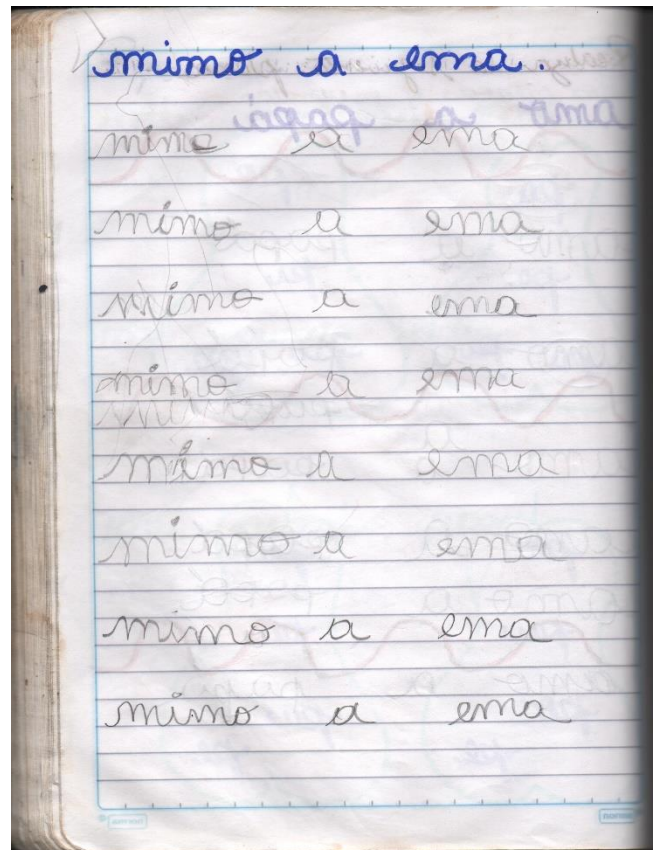 mimo a ema.
mimo a ema
mimo a ema
mimo a ema
mimo a ema
mimo a ema
mimo a ema
mimo a ema
mimo a ema
norma